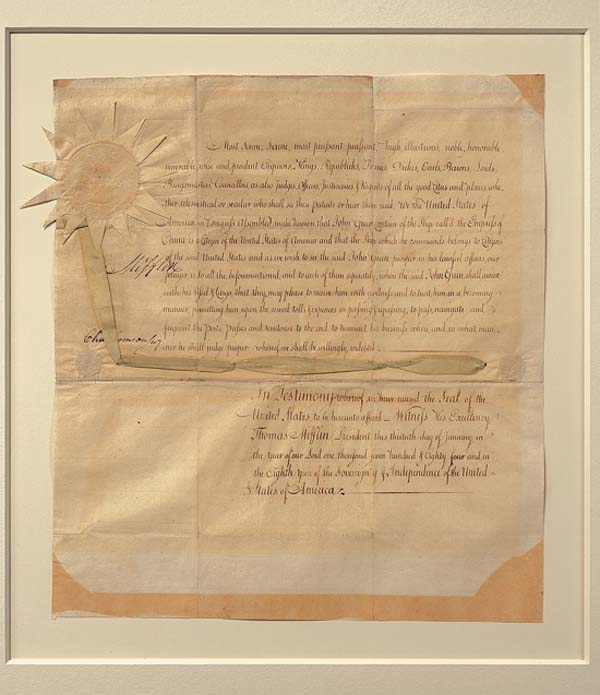 Most serene, serene, most puissant, puissant, high, illustrious, noble, honorable,
venerable, wise and prudent Emperors, Kings, Republicks, Princes, Dukes, Earls, Barons, Lords,
Burgomasters, Councillors, as also Judges, Officers, Justiciaries & Regents of all the good Cities and places, whe-
ther eclesiastical or secular who shall see these patents or hear them read, We the United States of
America in Congress Assembled, make known that John Green Captain of the Ship call'd the Empress of
China is a Citizen of the United States of America and that the Ship which he commands belongs to Citizens
of the said United States and as we wish to see the said John Green prosper in his lawful affairs, our
prayer is to all the beforementioned, and to each of them separately, where the said John Green shall arrive
with his Vessel & Cargo, that they may please to receive him with goodness and to treat him in a becoming
manner, permitting him upon the usual tolls & expences in passing & repassing, to pass, navigate and
frequent the Ports, Passes and territories to the end to transact his business where and in what man-
ner he shall judge proper whereof we shall be willingly indebted.
Mifflin
Cha Thomson Secy
In Testimony whereof we have caused the Seal of the
United States to be hereunto affixed Witness His Excellency
Thomas Mifflin President this thirtieth day of January in
the Year of our Lord one thousand seven hundred & Eighty four and in
the Eighth Year of the Sovereignty & Independence of the United
States of America